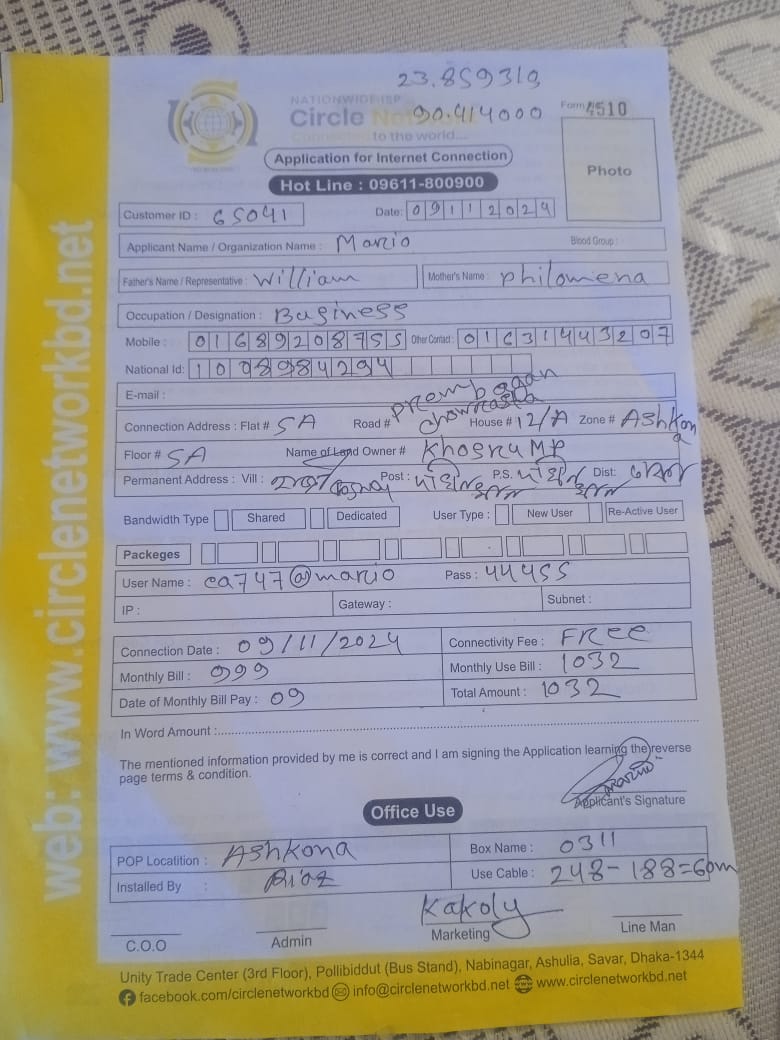 23.859319
NATIONWIDE ISP
Circle Ne 90.414000 Form 4510
Connected to the world...
Application for Internet Connection
Photo
Hot Line : 09611-800900
Customer ID : 65041 Date: 09112024
Applicant Name / Organization Name : Mario Blood Group :
Father's Name / Representative : William Mother's Name : Philomena
Occupation / Designation : Business
Mobile : 01689208755 Other Contact : 01631443207
National Id: 1008984294
E-mail :
Connection Address : Flat # 5A Road # Prembagan Chowrasta House # 12/A Zone # Ashkona
Floor # 5A Name of Land Owner # Khosru MP
Permanent Address : Vill : Post : P.S. Dist:
Bandwidth Type Shared Dedicated User Type : New User Re-Active User
Packeges
User Name : ca747@mario Pass : 44455
IP : Gateway : Subnet :
Connection Date : 09/11/2024 Connectivity Fee : FREE
Monthly Bill : 999 Monthly Use Bill : 1032
Date of Monthly Bill Pay : 09 Total Amount : 1032
In Word Amount :
The mentioned information provided by me is correct and I am signing the Application learning the reverse
page terms & condition.
Applicant's Signature
Office Use
POP Locatition : Ashkona Box Name : 0311
Installed By : Riaz Use Cable : 248-188=60m
Kakoly
C.O.O Admin Marketing Line Man
Unity Trade Center (3rd Floor), Pollibiddut (Bus Stand), Nabinagar, Ashulia, Savar, Dhaka-1344
facebook.com/circlenetworkbd info@circlenetworkbd.net www.circlenetworkbd.net
web: www.circlenetworkbd.net